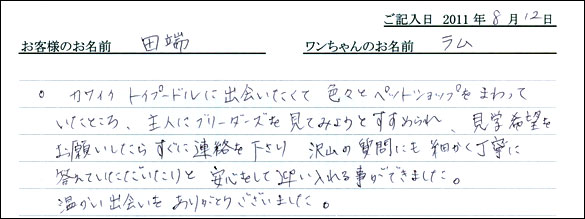 ご記入日 2011年 8月 12日
お客様のお名前 田端 ワンちゃんのお名前 ラム
。カワイイ トイプードルに出会いたくて 色々とペットショップをまわって
いたところ、主人にブリーダーズを見てみようとすすめられ、見学希望を
お願いしたらすぐに連絡を下さり 沢山の質問にも細かく丁寧に
答えていただいたりと 安心をして迎い入れる事ができました。
温かい出会いを ありがとうございました。